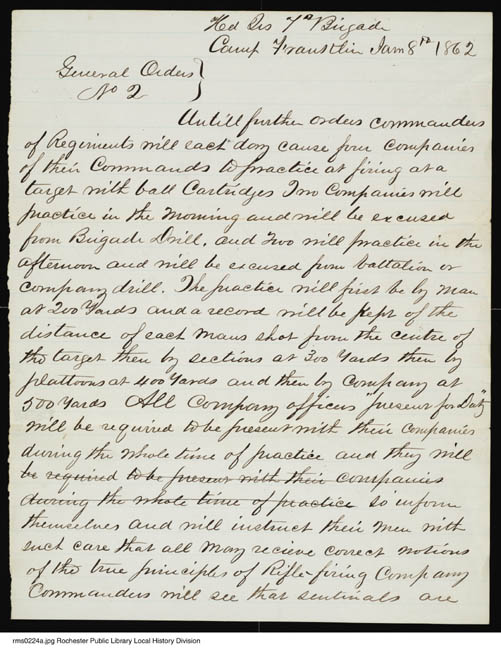 Hd Qrs 7th Brigade
Camp Franklin Jan 8th 1862
General Orders }
No 2
Untill further orders commanders
of Regiments will each day cause four Companies
of their Commands to practice at firing at a
target with ball Cartridges Two Companies will
practice in the Morning and will be excused
from Brigade Drill, and Two will practice in the
afternoon and will be excused from battalion or
company drill. The practice will first be by Man
at 200 Yards and a record will be kept of the
distance of each Mans shot from the centre of
the target then by sections at 300 Yards then by
plattoons at 400 Yards and then by Company at
500 Yards All Company officers "present for Duty"
will be required to be present with their Companies
during the whole time of practice and they will
be required to be present with their companies
during the whole time of practice so inform
themselves and will instruct their Men with
such care that all May recieve correct notions
of the true principles of Rifle firing Company
Commanders will see that sentinals are
rms0224a.jpg Rochester Public Library Local History Division